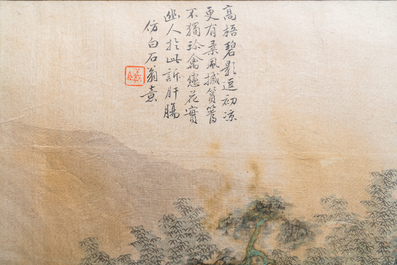 高梧碧影逗初涼
更有柔風撼篔簹
不獨珍禽戀花實
幽人於此訴肝腸
仿白石翁意